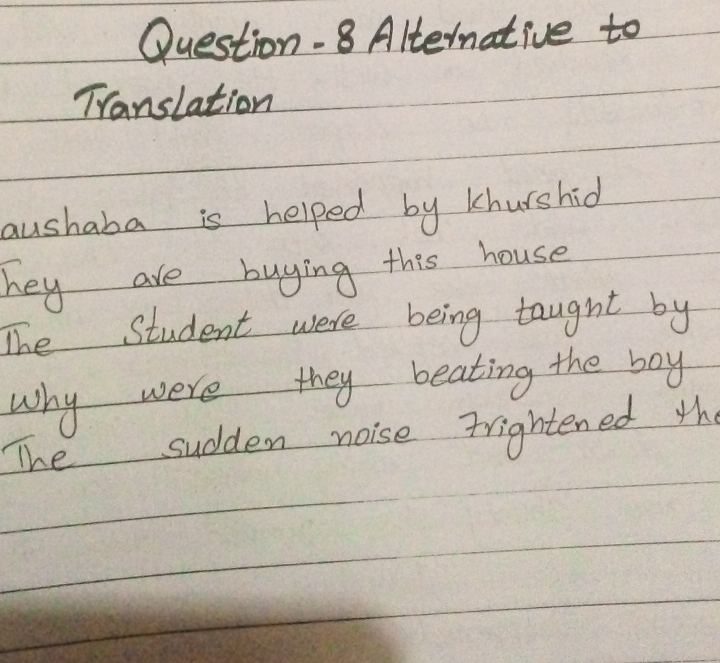 Question - 8 Alternative to
Translation
aushaba is helped by Khurshid
They are buying this house
The Student were being taught by
Why were they beating the boy
The sudden noise frightened the